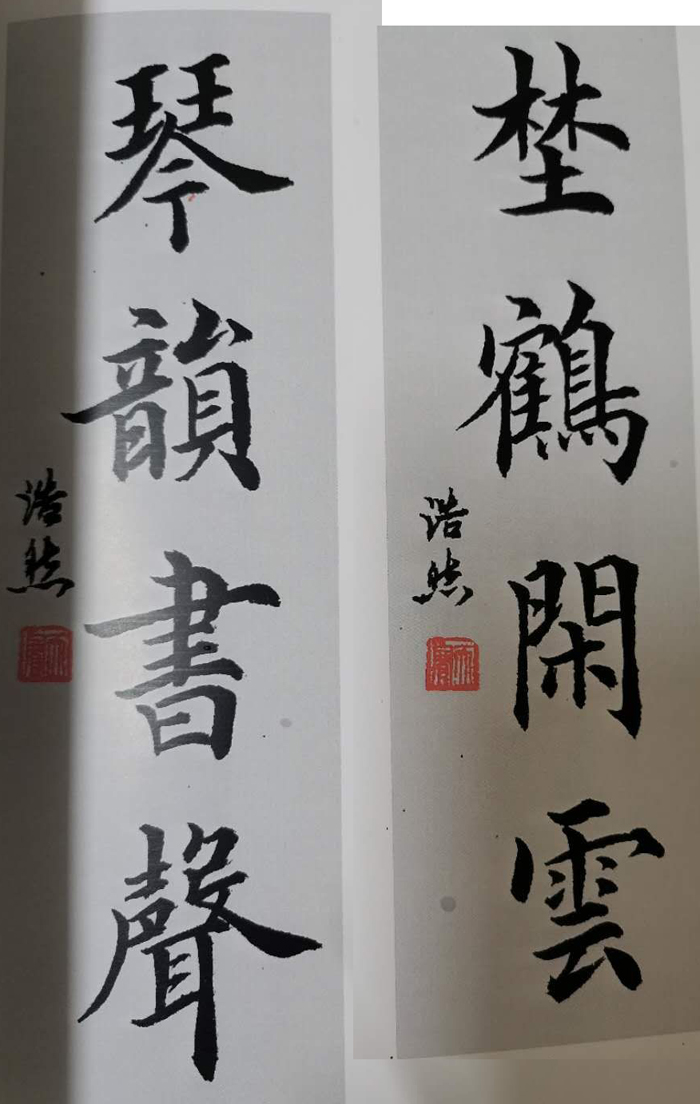 埜鶴閑雲
浩然
琴韻書聲
浩然